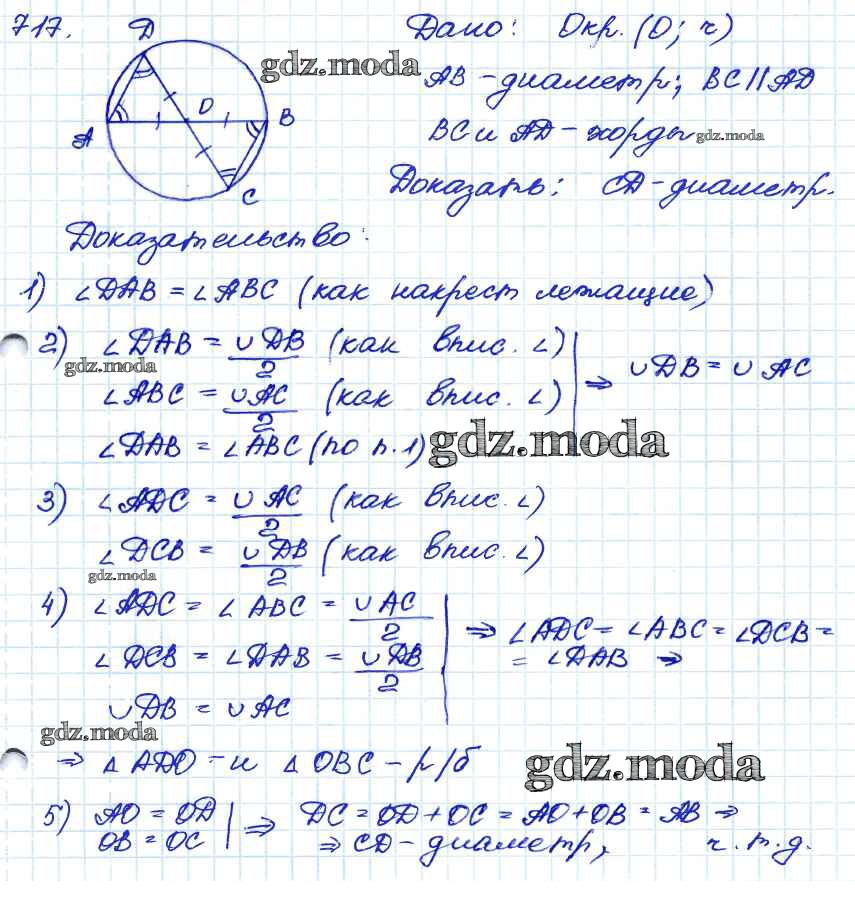 717.
D
O
A
B
C
Дано: Окр. (O; r)
gdz.moda
AB - диаметр; BC || AD
BC и AD - хорды gdz.moda
Доказать: CD - диаметр.
Доказательство:
1) ∠DAB = ∠ABC (как накрест лежащие)
2) ∠DAB = ∪DB/2 (как впис. ∠)
gdz.moda
∠ABC = ∪AC/2 (как впис. ∠)
∠DAB = ∠ABC (по п.1)
⇒ ∪DB = ∪AC
gdz.moda
3) ∠ADC = ∪AC/2 (как впис. ∠)
∠DCB = ∪DB/2 (как впис. ∠)
gdz.moda
4) ∠ADC = ∠ABC = ∪AC/2
∠DCB = ∠DAB = ∪DB/2
∪DB = ∪AC
⇒ ∠ADC = ∠ABC = ∠DCB =
= ∠DAB ⇒
gdz.moda
⇒ ΔADO - и ΔOBC - р/б
gdz.moda
5) AO = OD
OB = OC
⇒ DC = OD + OC = AO + OB = AB ⇒
⇒ CD - диаметр, ч.т.д.